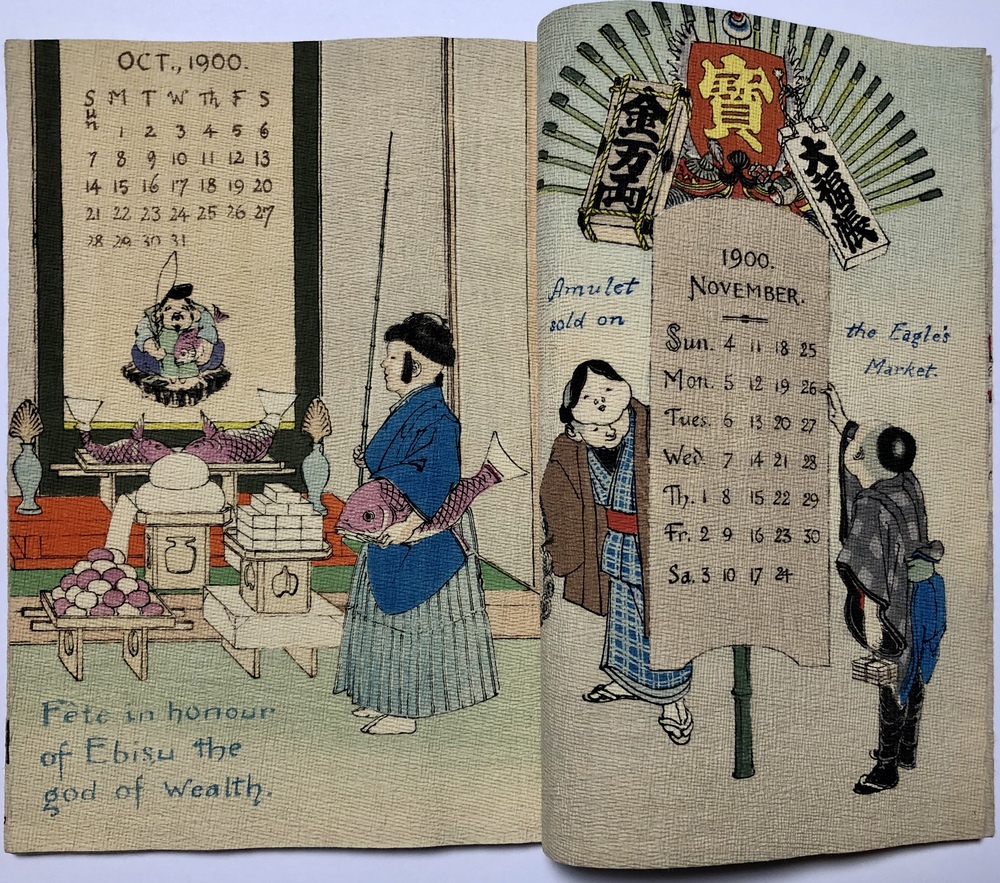 OCT., 1900.
Sun M T W Th F S
1 2 3 4 5 6
7 8 9 10 11 12 13
14 15 16 17 18 19 20
21 22 23 24 25 26 27
28 29 30 31
Fête in honour
of Ebisu the
god of Wealth.
寶
金万両
大福帳
Amulet
sold on
the Eagle's
Market.
1900.
NOVEMBER.
Sun. 4 11 18 25
Mon. 5 12 19 26
Tues. 6 13 20 27
Wed. 7 14 21 28
Th. 1 8 15 22 29
Fr. 2 9 16 23 30
Sa. 3 10 17 24